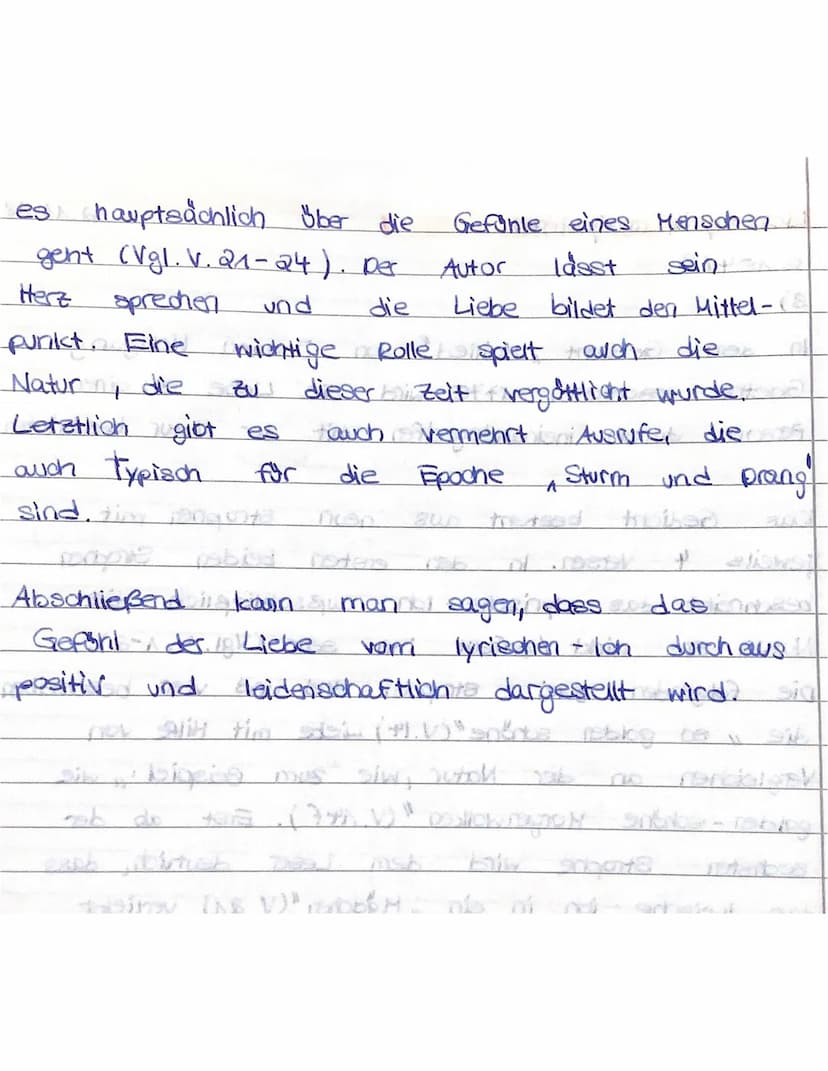 es hauptsächlich über die Gefühle eines Menschen
geht (Vgl. V. 21-24). Der Autor lässt sein
Herz sprechen und die Liebe bildet den Mittel-
punkt. Eine wichtige Rolle spielt auch die
Natur, die zu dieser Zeit vergöttlicht wurde.
Letztlich gibt es auch vermehrt Ausrufe, die
auch Typisch für die Epoche „Sturm und Drang"
sind.
Abschließend kann man sagen, dass das
Gefühl der Liebe vom lyrischen-Ich durchaus
positiv und leidenschaftlich dargestellt wird.